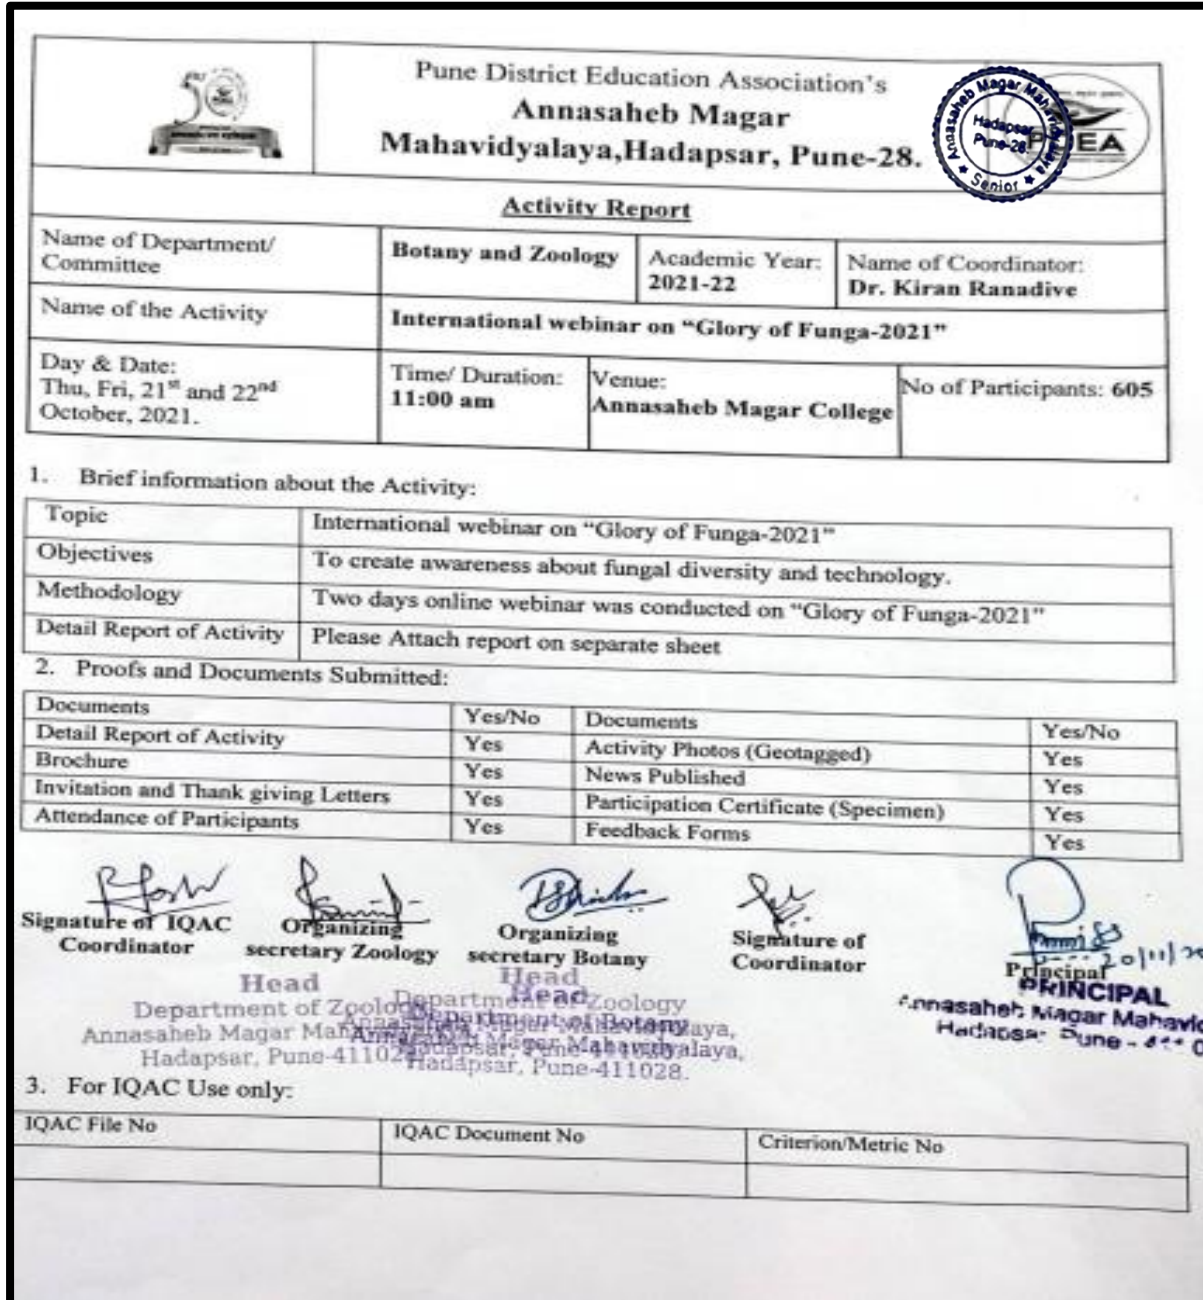 Pune District Education Association's
Annasaheb Magar
Mahavidyalaya,Hadapsar, Pune-28.
Annasaheb Magar Mahavidyalaya
Hadapsar
Pune-28
★ Senior ★
EA
50
Activity Report
Name of Department/
Committee
Botany and Zoology
Academic Year:
2021-22
Name of Coordinator:
Dr. Kiran Ranadive
Name of the Activity
International webinar on “Glory of Funga-2021”
Day & Date:
Thu, Fri, 21st and 22nd
October, 2021.
Time/ Duration:
11:00 am
Venue:
Annasaheb Magar College
No of Participants: 605
1. Brief information about the Activity:
Topic International webinar on “Glory of Funga-2021”
Objectives To create awareness about fungal diversity and technology.
Methodology Two days online webinar was conducted on “Glory of Funga-2021”
Detail Report of Activity Please Attach report on separate sheet
2. Proofs and Documents Submitted:
Documents Yes/No Documents Yes/No
Detail Report of Activity Yes Activity Photos (Geotagged) Yes
Brochure Yes News Published Yes
Invitation and Thank giving Letters Yes Participation Certificate (Specimen) Yes
Attendance of Participants Yes Feedback Forms Yes
Signature of IQAC
Coordinator
Organizing
secretary Zoology
Organizing
secretary Botany
Signature of
Coordinator
20/11/20
Principal
PRINCIPAL
Annasaheb Magar Mahavid
Hadapsar Pune -
Head
Department of Zoology
Annasaheb Magar
Hadapsar, Pune-411028
Head
Department of Zoology
Head
Department of Botany
Annasaheb Magar Mahavidyalaya,
Hadapsar, Pune-411028.
3. For IQAC Use only:
IQAC File No IQAC Document No Criterion/Metric No